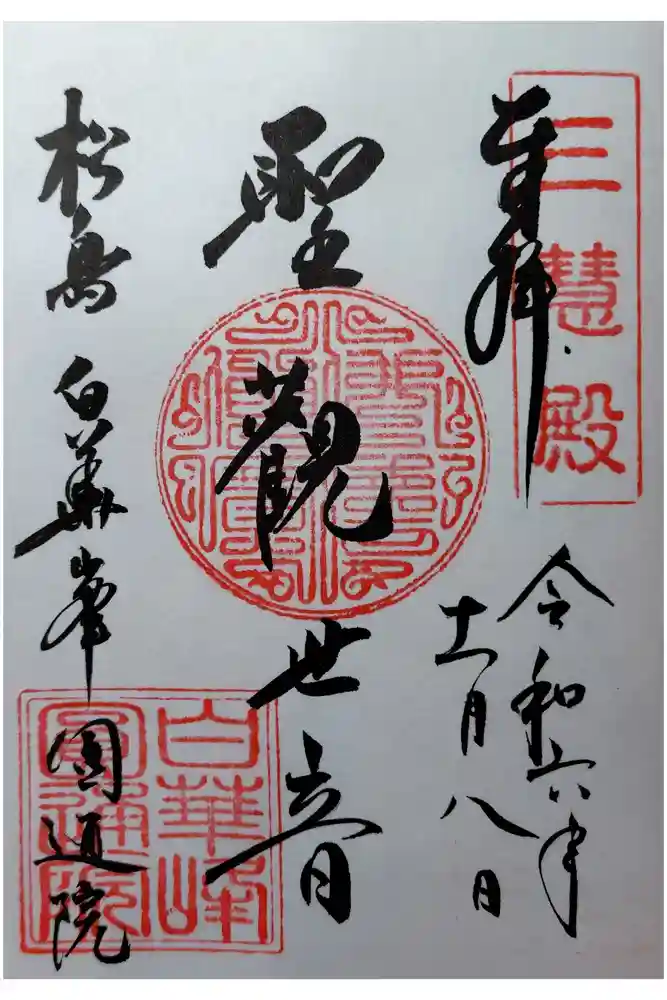 奉拝
三慧殿
令和六年
十一月八日
聖觀世音
松島 白華峯圓通院
白華峰
圓通院